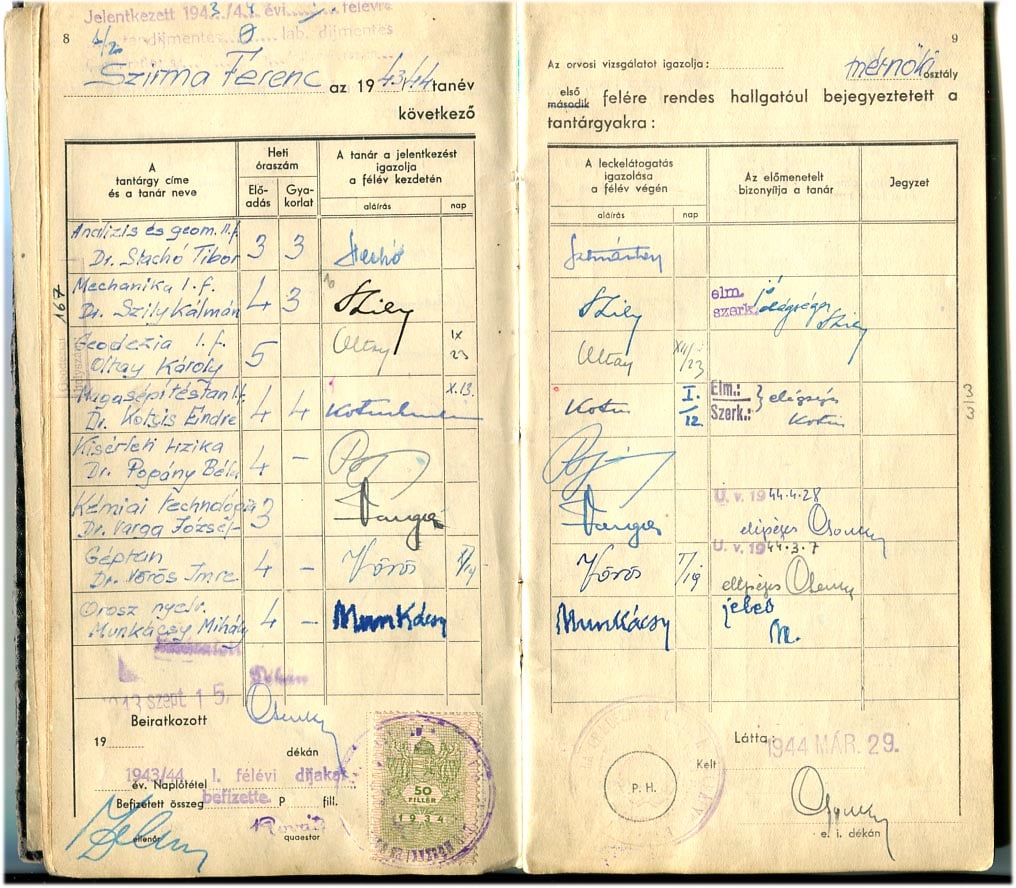 Jelentkezett 1943/44 évi I. félévre
8
tandíjmentes 0 lab. díjmentes
Szirma Ferenc az 1943/44 tanév
következő
A tantárgy címe és a tanár neve
Heti óraszám
Elő-adás
Gya-korlat
A tanár a jelentkezést igazolja a félév kezdetén
aláírás
nap
Analízis és geom. II. f.
Dr. Stachó Tibor 3 3 Stachó
Mechanika I. f.
Dr. Szily Kálmán 4 3 Szily
167
Geodezia I. f.
Oltay Károly 5 Oltay IX 23
Magasépítéstan I. f.
Dr. Kotsis Endre 4 4 X.13.
Kisérleti fizika
Dr. Pogány Béla 4 -
Kémiai technológia
Dr. Varga József 3 - Varga
Géptan
Dr. Vörös Imre 4 - Vörös
Orosz nyelv.
Munkácsy Mihály 4 - Munkácsy
Dékán
1943 szept 15.
Beiratkozott
19
dékán
1943/44 I. félévi díjakat
év. Naplótétel
befizette.
Befizetett összeg P fill.
ellenőr
quaestor
50
FILLÉR
1934
9
Az orvosi vizsgálatot igazolja :
mérnöki osztály
első
második felére rendes hallgatóul bejegyeztetett a
tantárgyakra :
A leckelátogatás igazolása a félév végén
aláírás
nap
Az előmenetelt bizonyítja a tanár
Jegyzet
Szily elm. jó
szerk. elégséges Szily
Oltay XII/23
Kotsis I. 12. Elm.: Szerk.: } elégséges Kotsis
3
3
Varga U. v. 1944.4.28
Vörös U. v. 1944.3.7
Munkácsy jeles
M.
Látta:
1944 MÁR. 29.
Kelt
P. H.
e. i. dékán